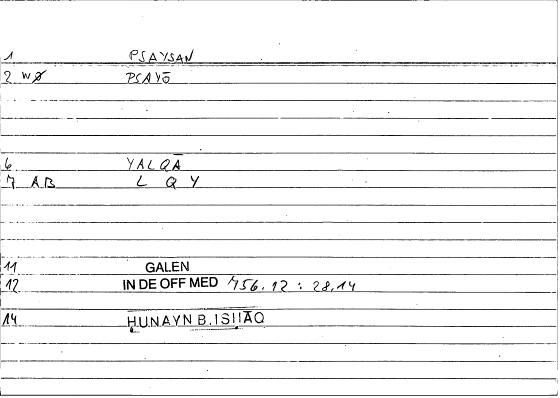 1 PSAYSAN
2 wø PSAYŌ
6 YALQĀ
7 AB L Q Y
11 GALEN
12 IN DE OFF MED 756.12 : 28,14
14 ḤUNAYN B. ISḤĀQ